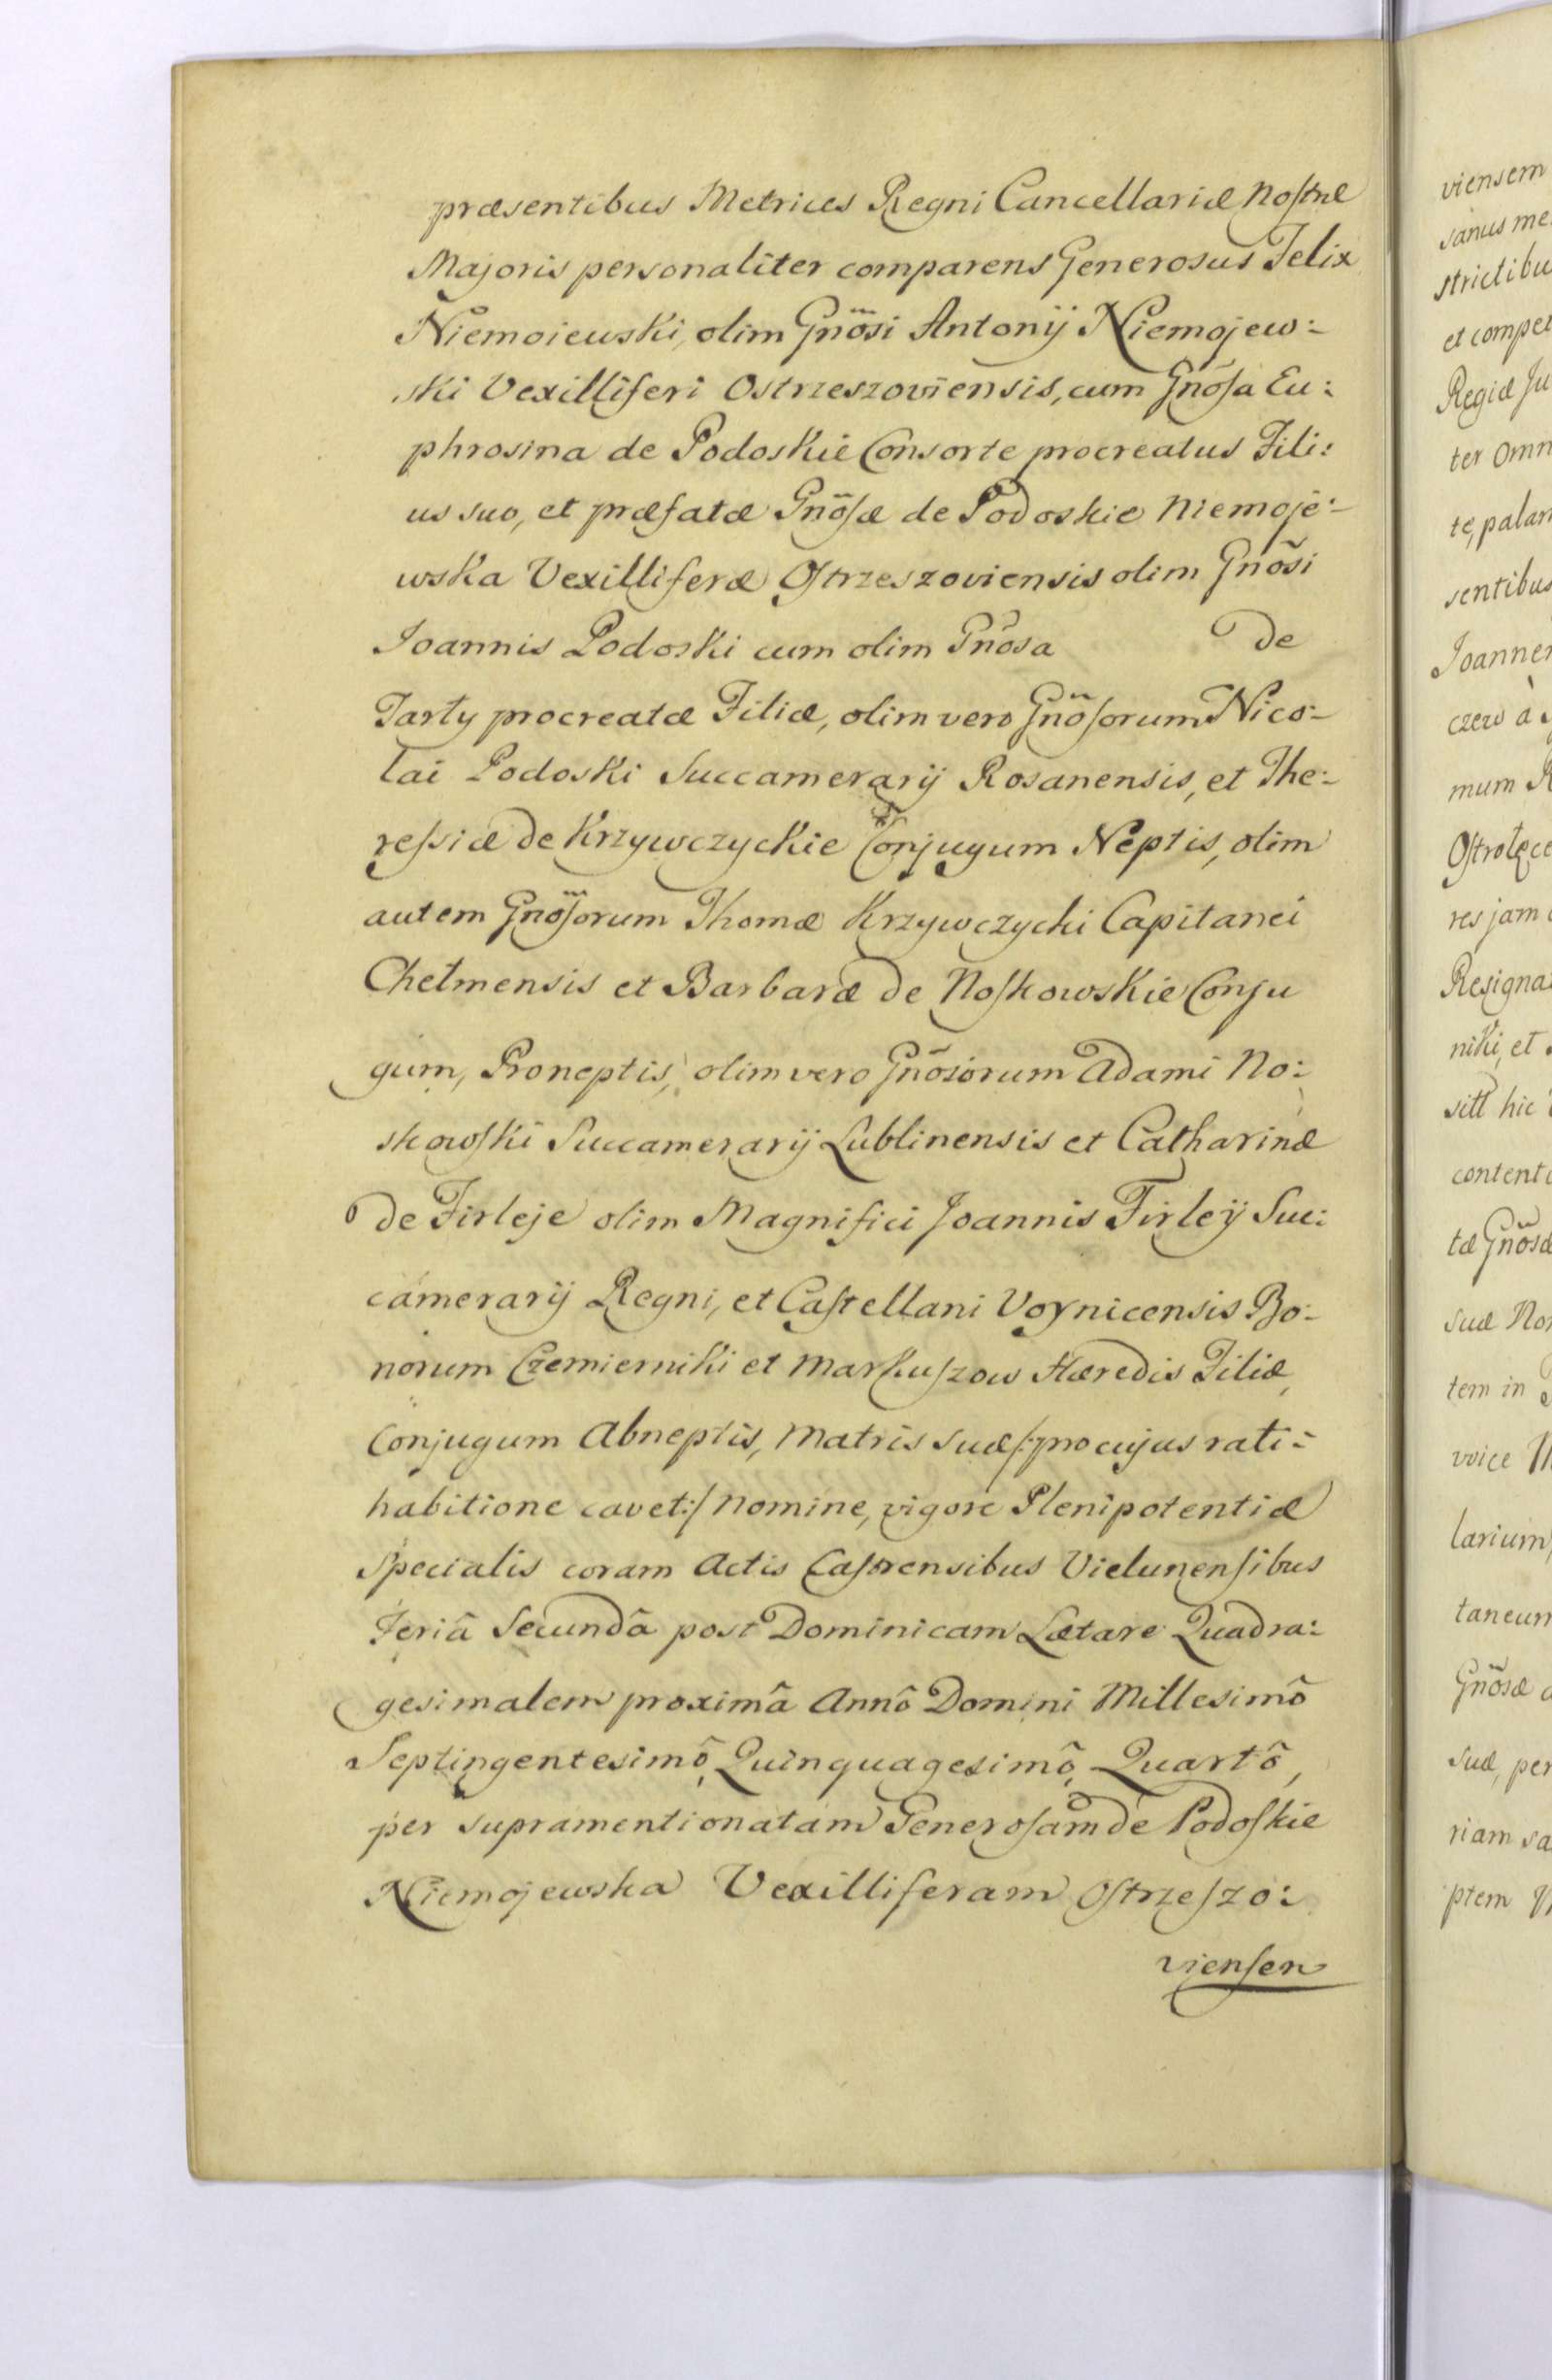 præsentibus Metrices Regni Cancellariæ Nostræ
Majoris personaliter comparens Generosus Felix
Niemoiewski, olim Gnõsi Antonij Niemojew:
ski Vexilliferi Ostrzeszoviensis, cum Gnõsa Eu:
phrosina de Podoskie Consorte procreatus Fili:
us suo, et præfatæ Gnõsæ de Podoskie Niemoje:
wska Vexilliferæ Ostrzeszoviensis olim Gnõsi
Joannis Podoski cum olim Gnõsa de
Tarły procreatæ Filiæ, olim vero Gnõsorum Nico:
lai Podoski Succamerarij Rosanensis, et The:
ressiæ de Krzywczyckie Conjugum Neptis, olim
autem Gnõsorum Thomæ Krzywczycki Capitanei
Chełmensis et Barbaræ de Noskowskie Conju
gum, Proneptis, olim vero Gnõsorum Adami No:
skowski Succamerarij Lublinensis et Catharinæ
de Firleje olim Magnifici Joannis Firleÿ Suc:
camerarij Regni, et Castellani Voynicensis Bo:
norum Czemierniki et Markuszow Hæredis Filiæ,
Conjugum Abneptis, Matris suæ /: pro cujus rati:
habitione cavet :/ Nomine, vigore Plenipotentiæ
Specialis coram Actis Castrensibus Vielunensibus
Feriâ Secundâ post Dominicam Lætare Quadra:
gesimalem proximâ Annô Domini Millesimô
Septingentesimô, Quinquagesimô, Quartô,
per supramentionatam Generosam de Podoskie
Niemojewska Vexilliferam Ostrzeszo:
viensem
viensem
sanus me
strictibu
et compet
Regiæ Ju
ter omn
te, palam
sentibus
Joannem
czew a
mum
Ostrołęce
res jam
Resigna
niki, et
sitt hic
content
tæ Gnõsæ
suæ No
tem in
voice
larium
taneum
Gnõsæ
suæ, per
riam sa
ptem